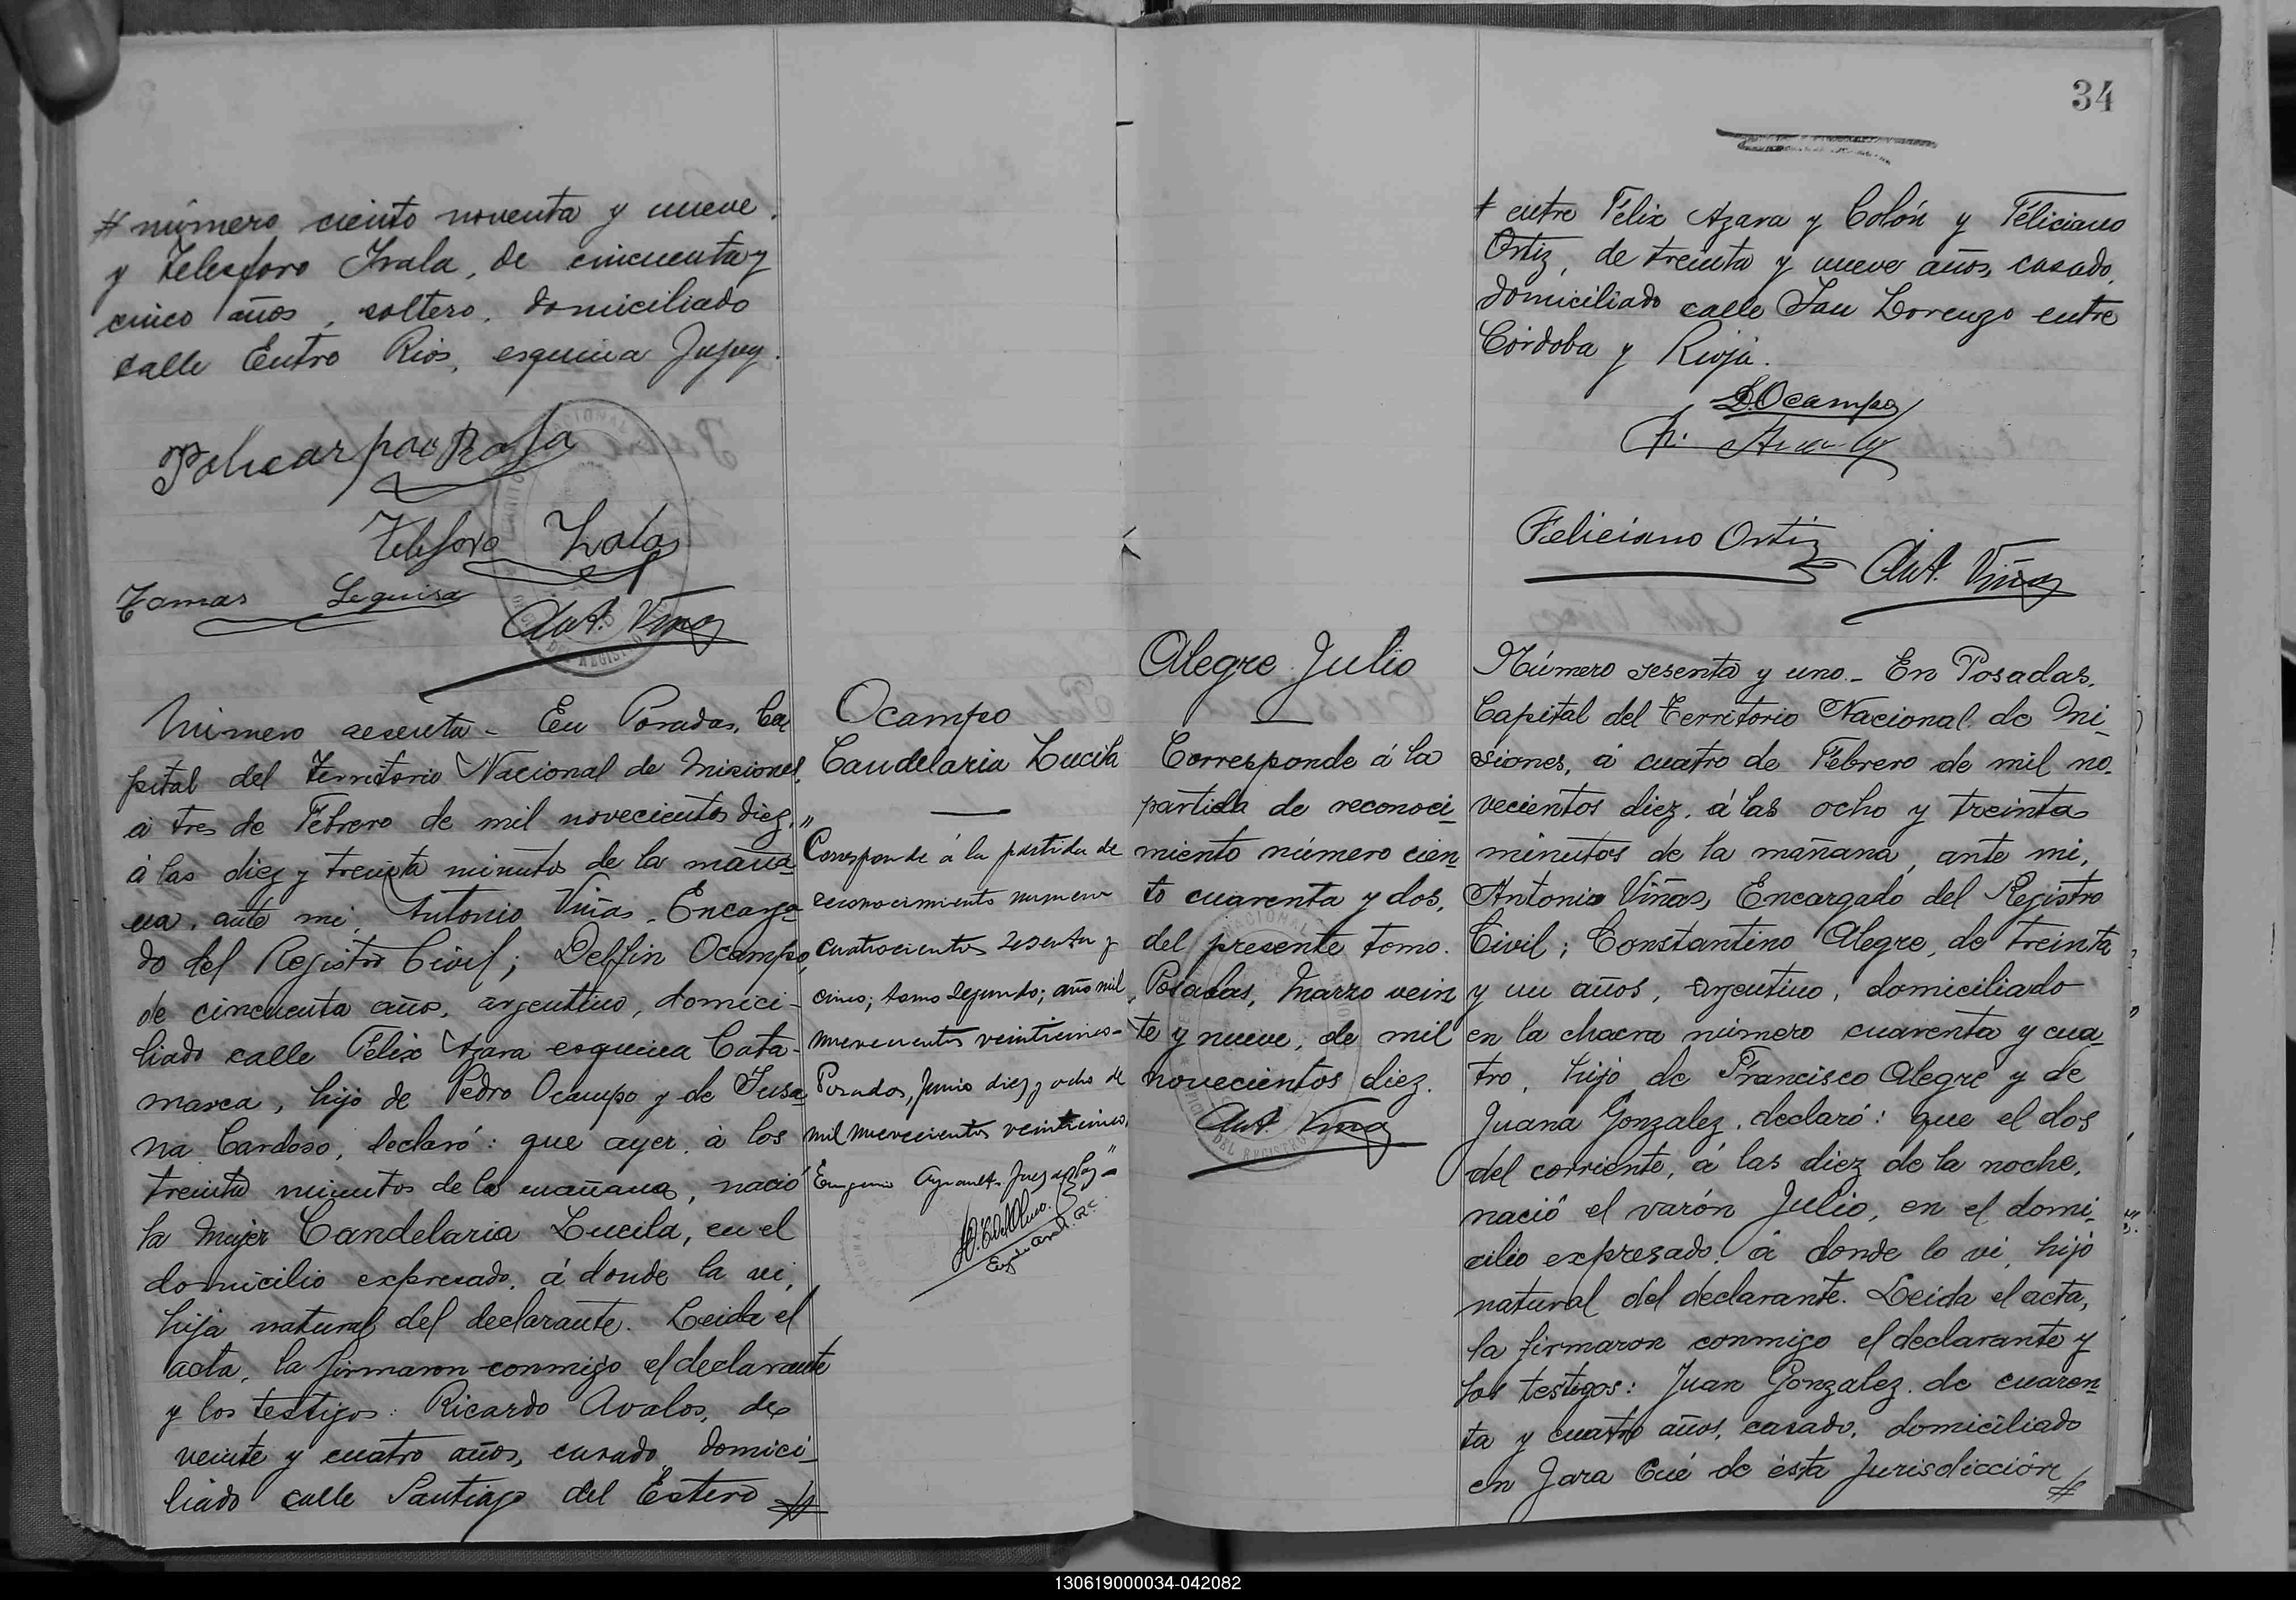 # número ciento noventa y nueve.
y Telesforo Irala, de cincuenta y
cinco años, soltero, domiciliado
calle Entre Rios, esquina Jujuy.
Telesforo Irala
Tomas Leguisa
Ant. Viñas
Número sesenta - En Posadas, Ca
pital del Territorio Nacional de Misiones,
á tres de Febrero de mil novecientos diez,
á las diez y treinta minutos de la maña-
na, ante mi, Antonio Viñas, Encarga
do del Registro Civil; Delfin Ocampo,
de cincuenta años, argentino, domici-
liado calle Félix Azara esquina Cata-
marca, hijo de Pedro Ocampo y de Susa-
na Cardoso, declaró: que ayer, á los
treinta minutos de la mañana, nació
la mujer Candelaria Lucila, en el
domicilio expresado, á donde la vi,
hija natural del declarante. Leida el
acta, la firmaron conmigo el declarante
y los testigos: Ricardo Avalos, de
veinte y cuatro años, casado, domici-
liado calle Santiago del Estero #
Ocampo
Candelaria Lucila
"Corresponde á la partida de
reconocimiento numero
cuatrocientos sesenta y
cinco; tomo segundo; año mil
novecientos veinticinco -
Posadas, Junio diez y ocho de
mil novecientos veinticinco,
Juez de Paz"-
34
# entre Félix Azara y Colón y Féliciano
Ortiz, de treinta y nueve años, casado,
domiciliado calle San Lorenzo entre
Córdoba y Rioja.
D. Ocampo
Feliciano Ortiz
Ant. Viñas
Alegre Julio
Corresponde á la
partida de reconoci-
miento número cien
to cuarenta y dos,
del presente tomo.
Posadas, Marzo vein
te y nueve, de mil
novecientos diez.
Ant. Viñas
Número sesenta y uno.- En Posadas,
Capital del Territorio Nacional de Mi-
siones, á cuatro de Febrero de mil no-
vecientos diez, á las ocho y treinta
minutos de la mañana, ante mi,
Antonio Viñas, Encargado del Registro
Civil; Constantino Alegre, de treinta
y un años, argentino, domiciliado
en la chacra número cuarenta y cua-
tro, hijo de Francisco Alegre y de
Juana Gonzalez, declaró: que el dos
del corriente, á las diez de la noche,
nació el varón Julio, en el domi-
cilio expresado, á donde lo vi, hijo
natural del declarante. Leida el acta,
la firmaron conmigo el declarante y
los testigos: Juan Gonzalez, de cuaren-
ta y cuatro años, casado, domiciliado
en Jara Cué de ésta Jurisdicción #
130619000034-042082